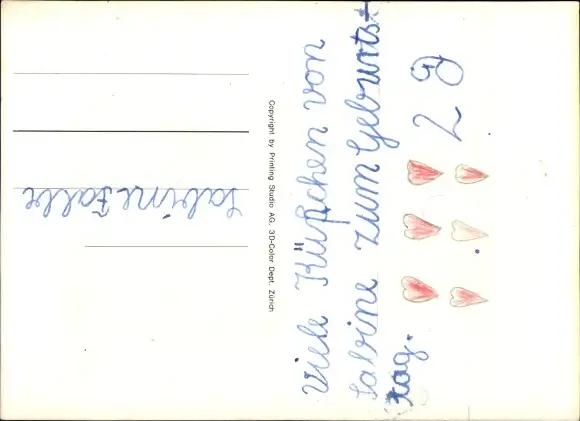 Viele Küßchen von
Sabine zum Geburts-
tag.
28
Copyright by Printing Studio AG. 3D-Color Dept. Zürich
Sabine